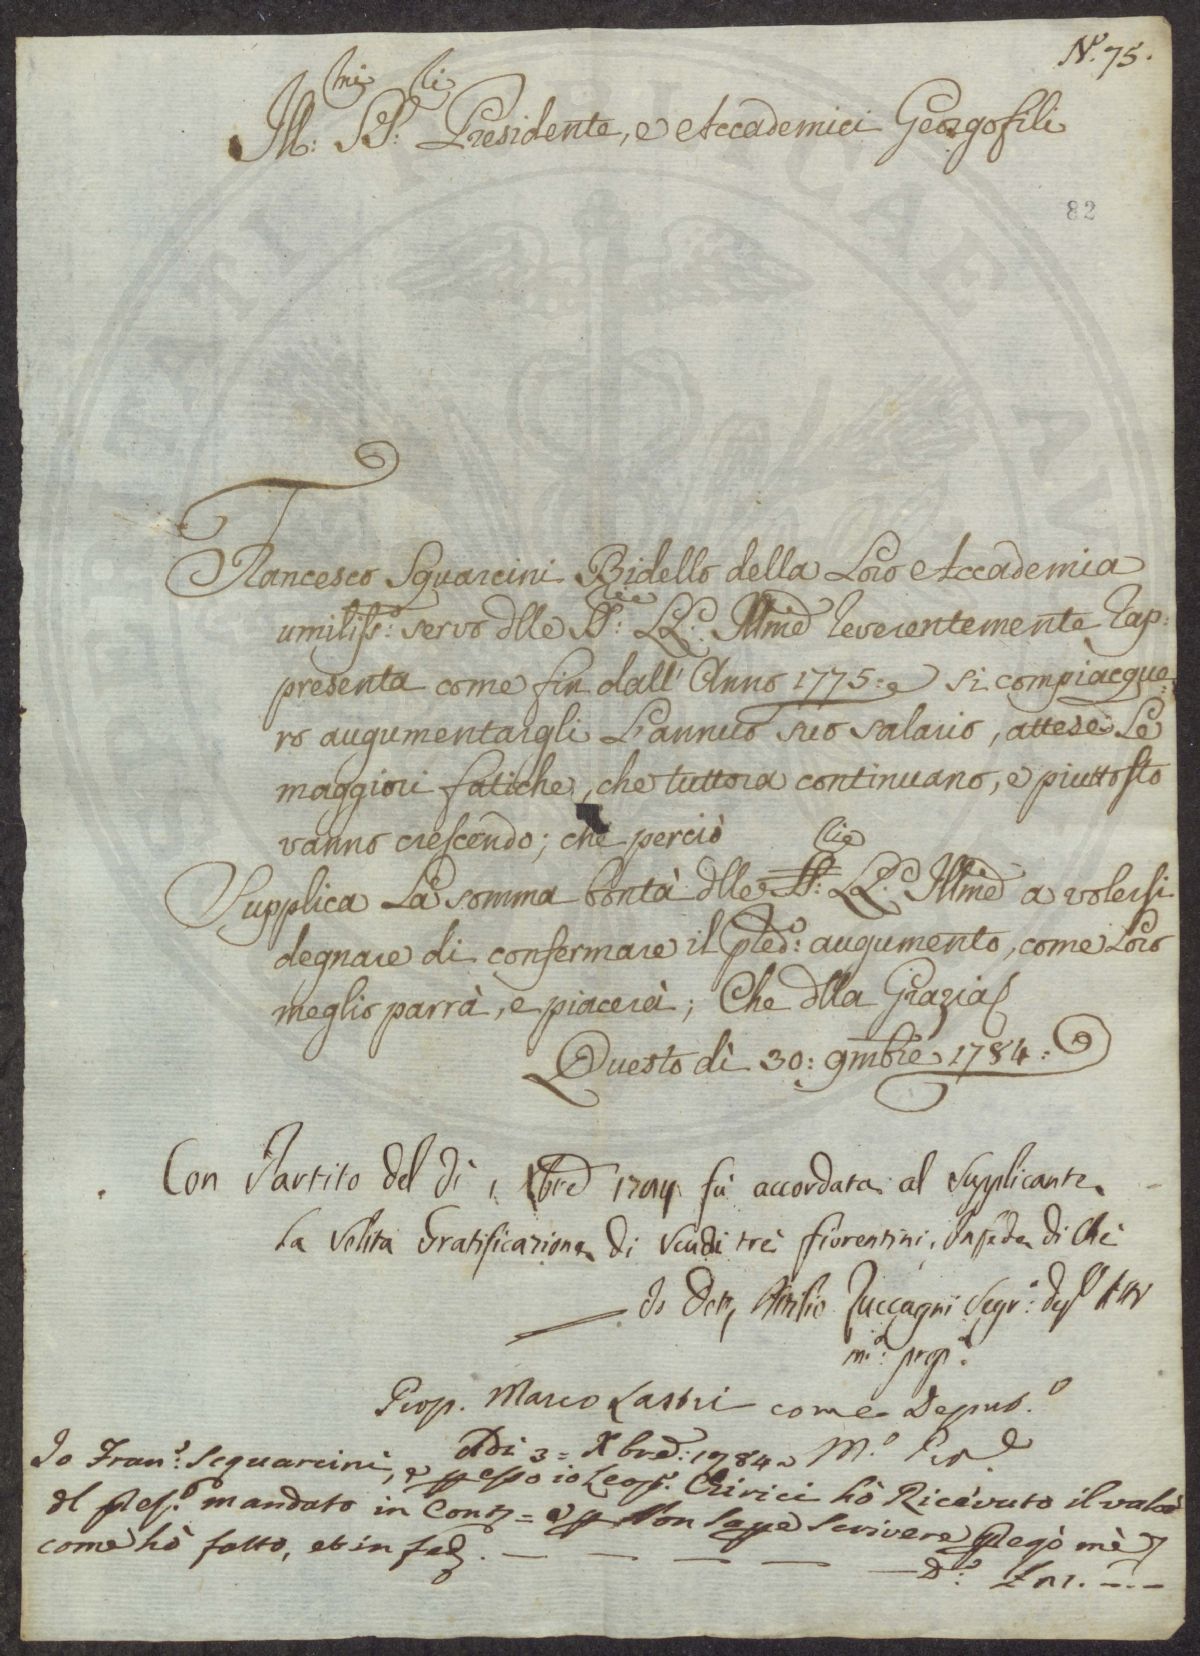 N.° 75.
Ill:mi SS:ri Presidente, e Accademici Georgofili
82
Francesco Sguarcini Bidello della Loro Accademia
umiliss:° servo dlle SS: LL: Illme reverentemente rap:
presenta come fin dall' Anno 1775: si compiacque:
ro augumentargli L'annuo suo salario, attese Le
maggiori fatiche, che tuttora continuano, e piuttosto
vanno crescendo; che perciò
Supplica La somma bontà dlle SS: LL: Illme a volersi
degnare di confermare il pred:° augumento, come Loro
meglio parrà, e piacerà; Che dlla Grazia
Questo dì 30: 9mbre 1784:
Con Partito del dì 1. Xbre 1784 fù accordata al Supplicante
la solita Gratificazione di Scudi trè fiorentini, In fede di che
Io Dott. Attilio Zuccagni Segr:°
m:° prop:°
Prop. Marco Lastri come Deput.°
Adì 3 = Xbre: 1784 M.°
Io Fran:° Sequarcini, e p esso io Leop:° Chirici hò Ricevuto il valore
del pres:° mandato in Cont = e p Non Sape Scrivere pregò mè
come hò fatto, et in fede. — — — —